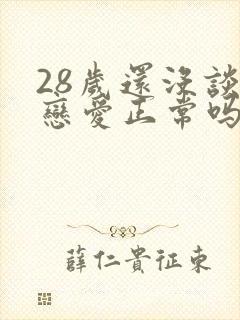 28歲還沒談
戀愛正常嗎
薛仁貴征東